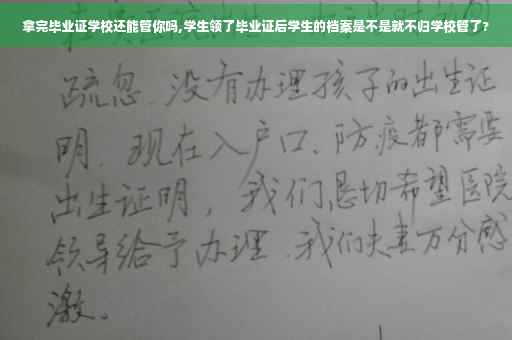 拿完毕业证学校还能管你吗,学生领了毕业证后学生的档案是不是就不归学校管了?
疏忽、没有办理孩子的出生证
明、现在入户口、防疫都需要
出生证明，我们恳切希望医院
领导给予办理、我们夫妻万分感
激。